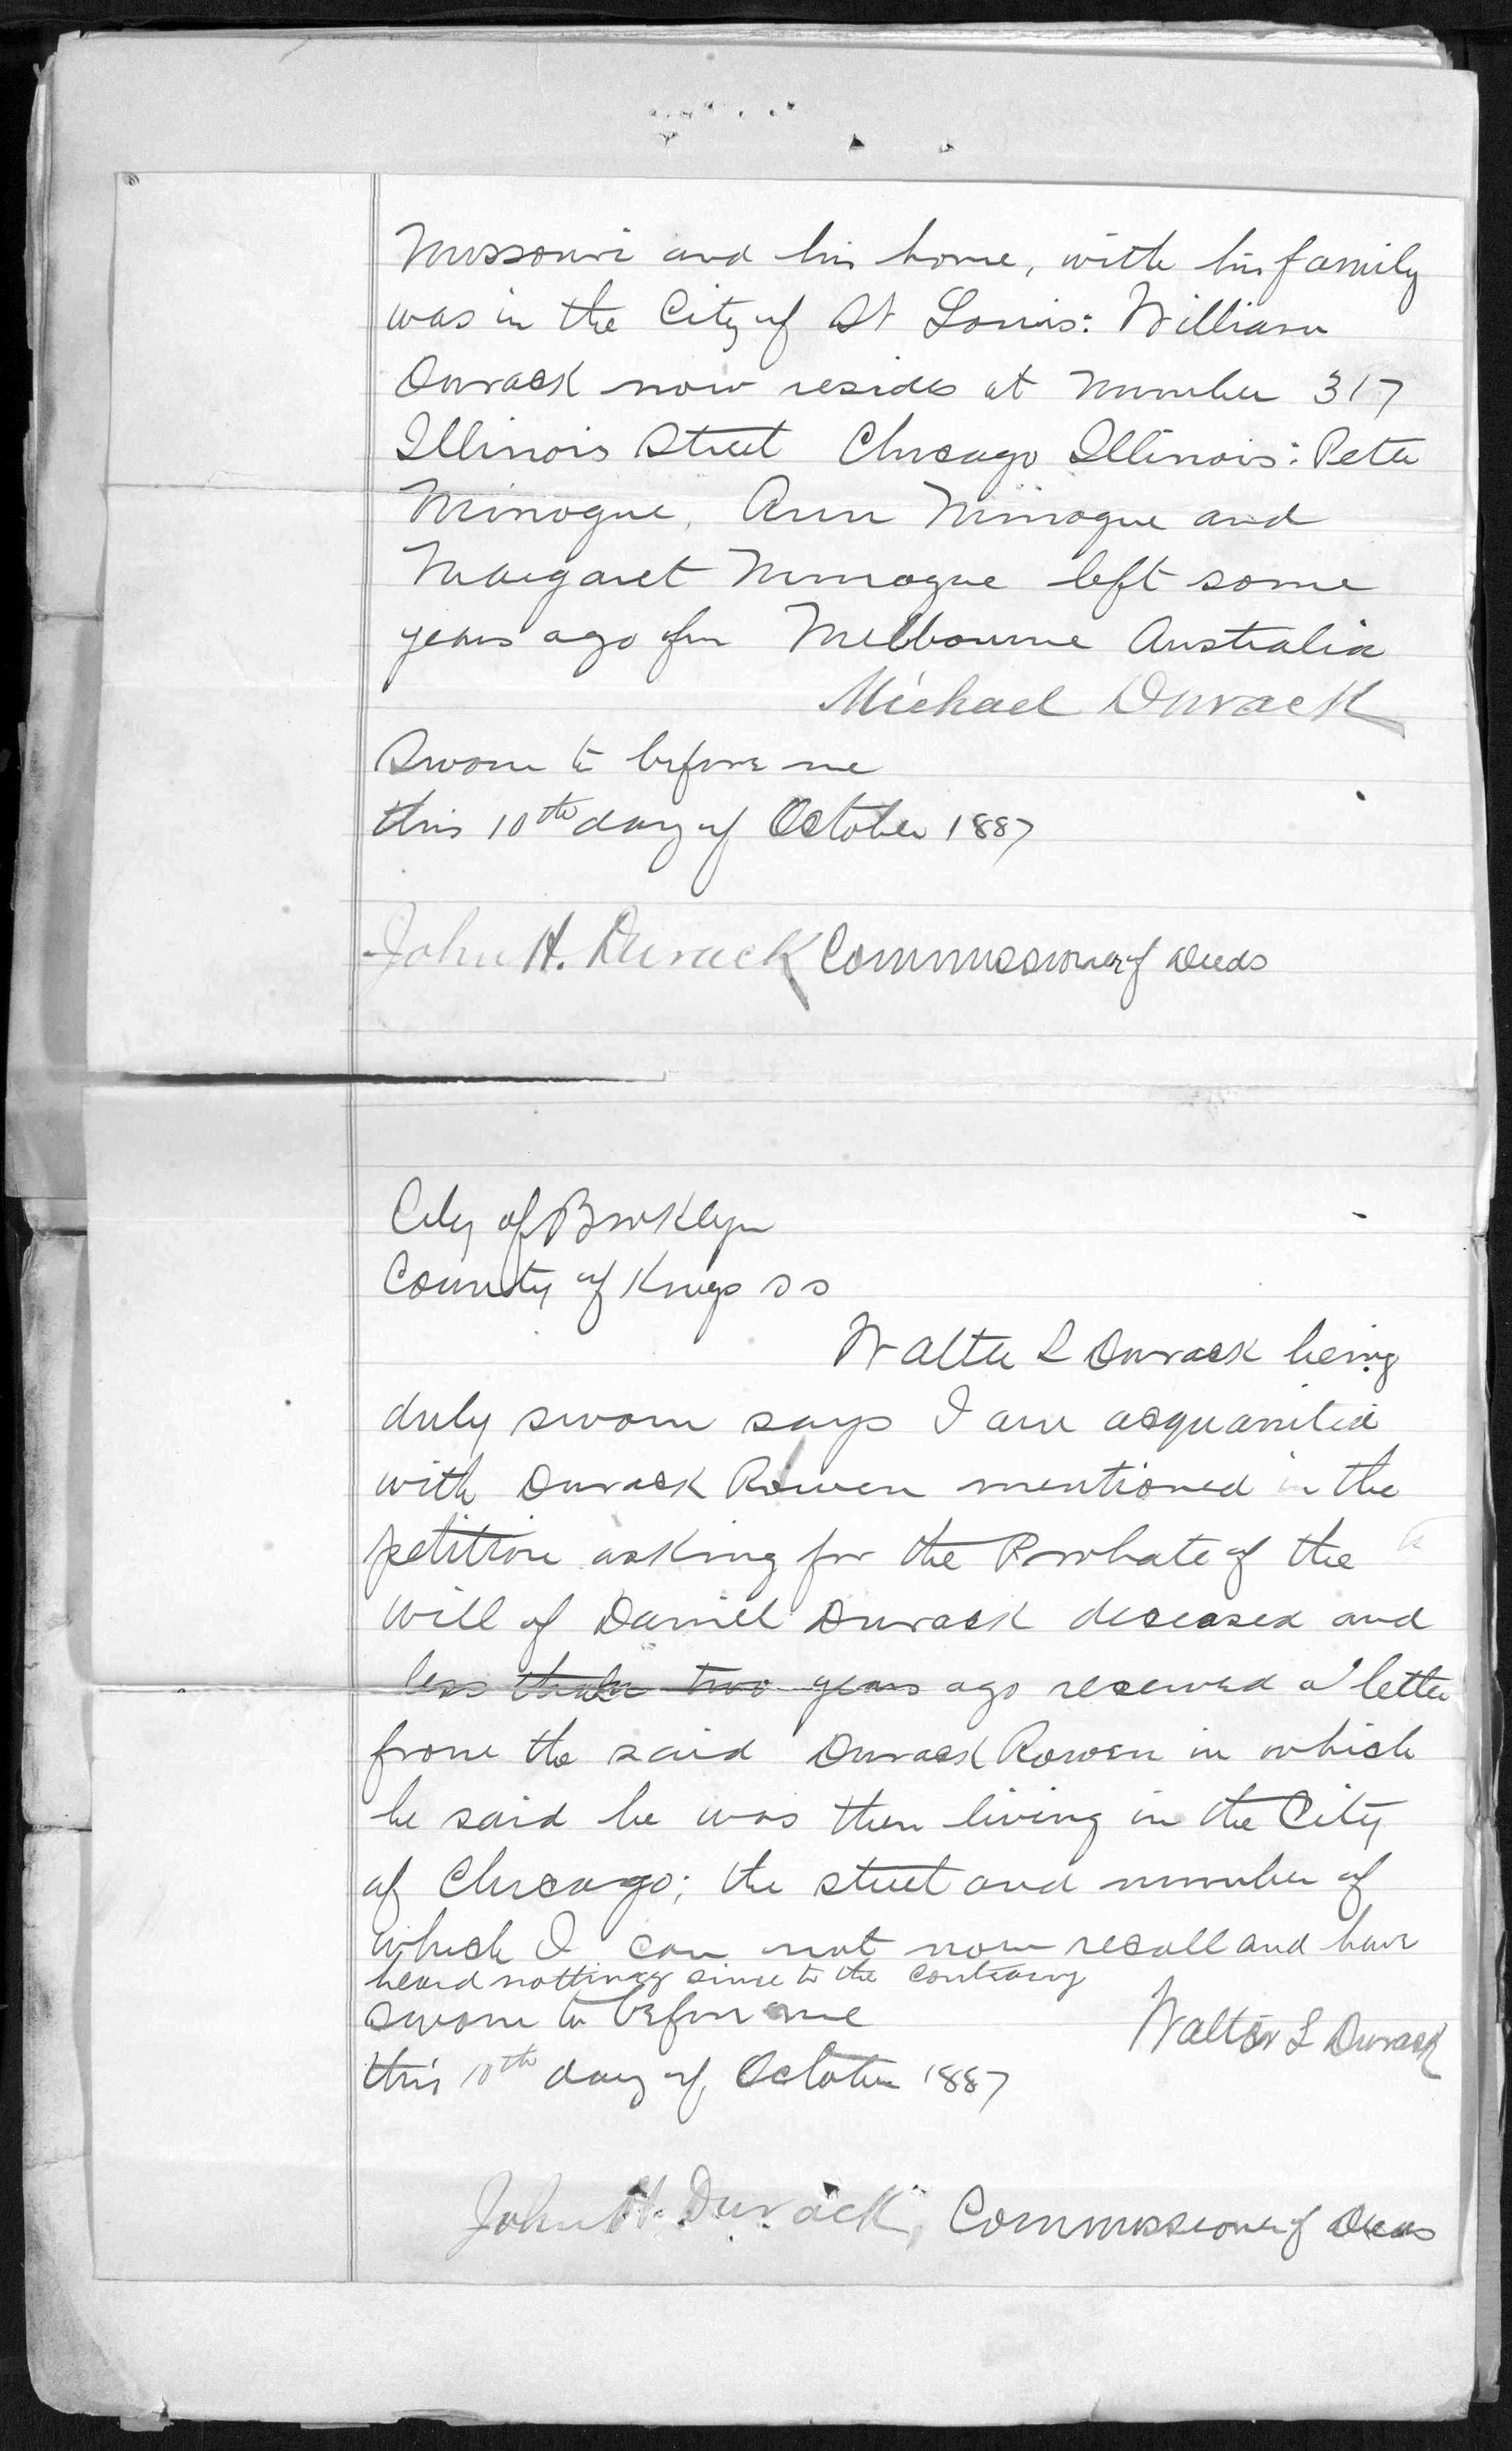 Missouri and his home, with his family
was in the City of St Louis: William
Durack now resides at Number 317
Illinois Street Chicago Illinois: Peter
Minogue, Ann Minogue and
Margaret Minogue left some
years ago for Melbourne Australia
Michael Durack
Sworn to before me
this 10th day of October 1887
John H. Durack Commissioner of Deeds
City of Brooklyn
County of Kings ss
Walter L Durack being
duly sworn says I am acquainted
with Durack Rowen mentioned in the
petition asking for the Probate of the
Will of Daniel Durack deceased and
less than two years ago received a letter
from the said Durack Rowen in which
he said he was then living in the City
of Chicago; the street and number of
which I can not now recall and have
heard nothing since to the contrary
Sworn to before me
Walter L Durack
this 10th day of October 1887
John H. Durack, Commissioner of Deeds